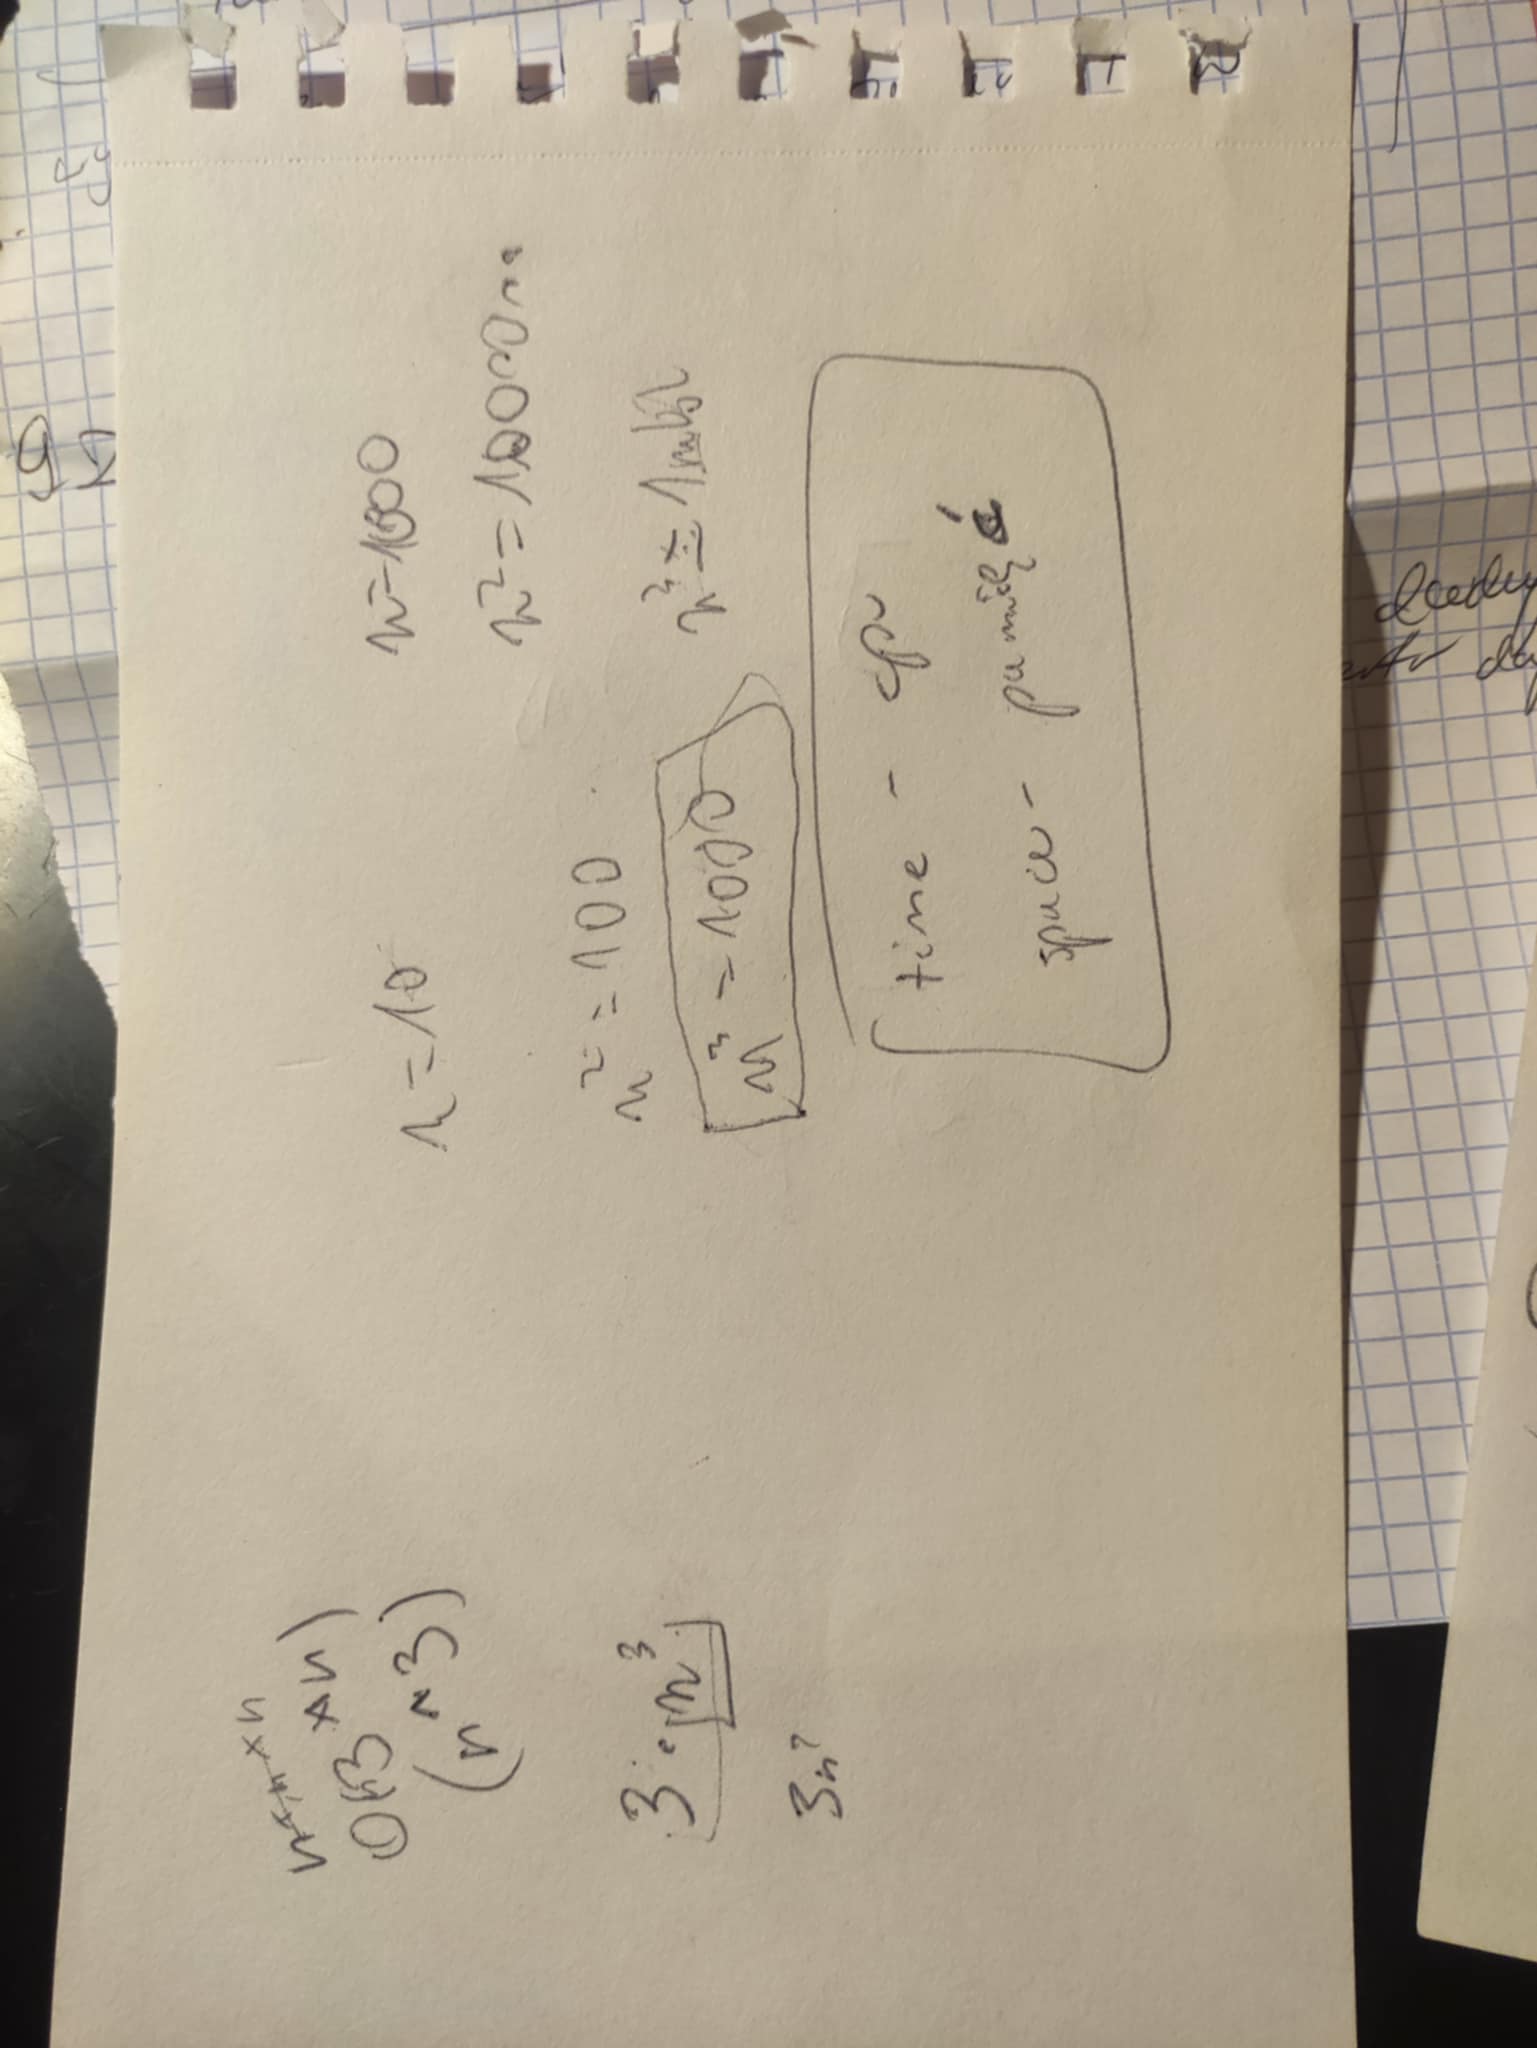 n×n×n
O(3×n)
(n^3)
3·n³
3n²
n=10
n²=100
n³=1000
n=1000
n²=10000...
time - cpu
space - pamięć